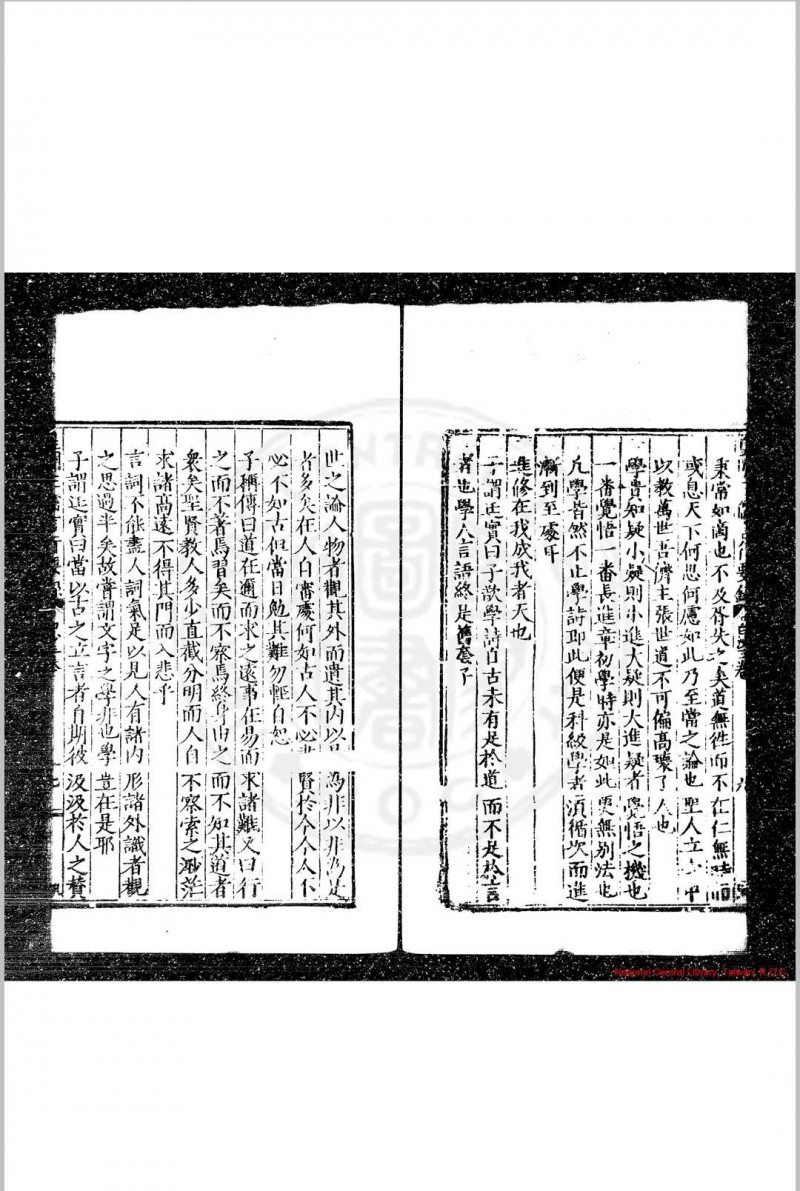 秉常如啇也不及胥失之矣道無徃而不在仁無時而
或息天下何思何慮如此乃至當之論也聖人立大中
以敎萬世吾儕主張世道不可偏高壞了人也
學貴知疑小疑則小進大疑則大進疑者覺悟之機也
一番覺悟一番長進章初學時亦是如此更無別法也
凡學皆然不止學詩即此便是科級學者須循次而進
漸到至處耳
進修在我成我者天也
子謂廷實曰子欲學詩自古未有足於道而不足於言
者也學人言語終是舊套子
世之論人物者觀其外而遺其內以是為非以非為是
者多矣在人自審處何如古人不必賢於今今人不
必不如古但當日勉其難勿輕自恕
子稱傳曰道在邇而求之遠事在易而求諸難又曰行
之而不著焉習矣而不察焉終身由之而不知其道者
衆矣聖賢教人多少直截分明而人自不察索之渺茫
求諸高遠不得其門而入悲乎
言詞不能盡人詞氣足以見人有諸内形諸外識者觀
之思過半矣故嘗謂文字之學非也學豈在是耶
子謂廷實曰當以古之立言者自期彼汲汲於人之贊
National Central Library, Taiwan, R.O.C.